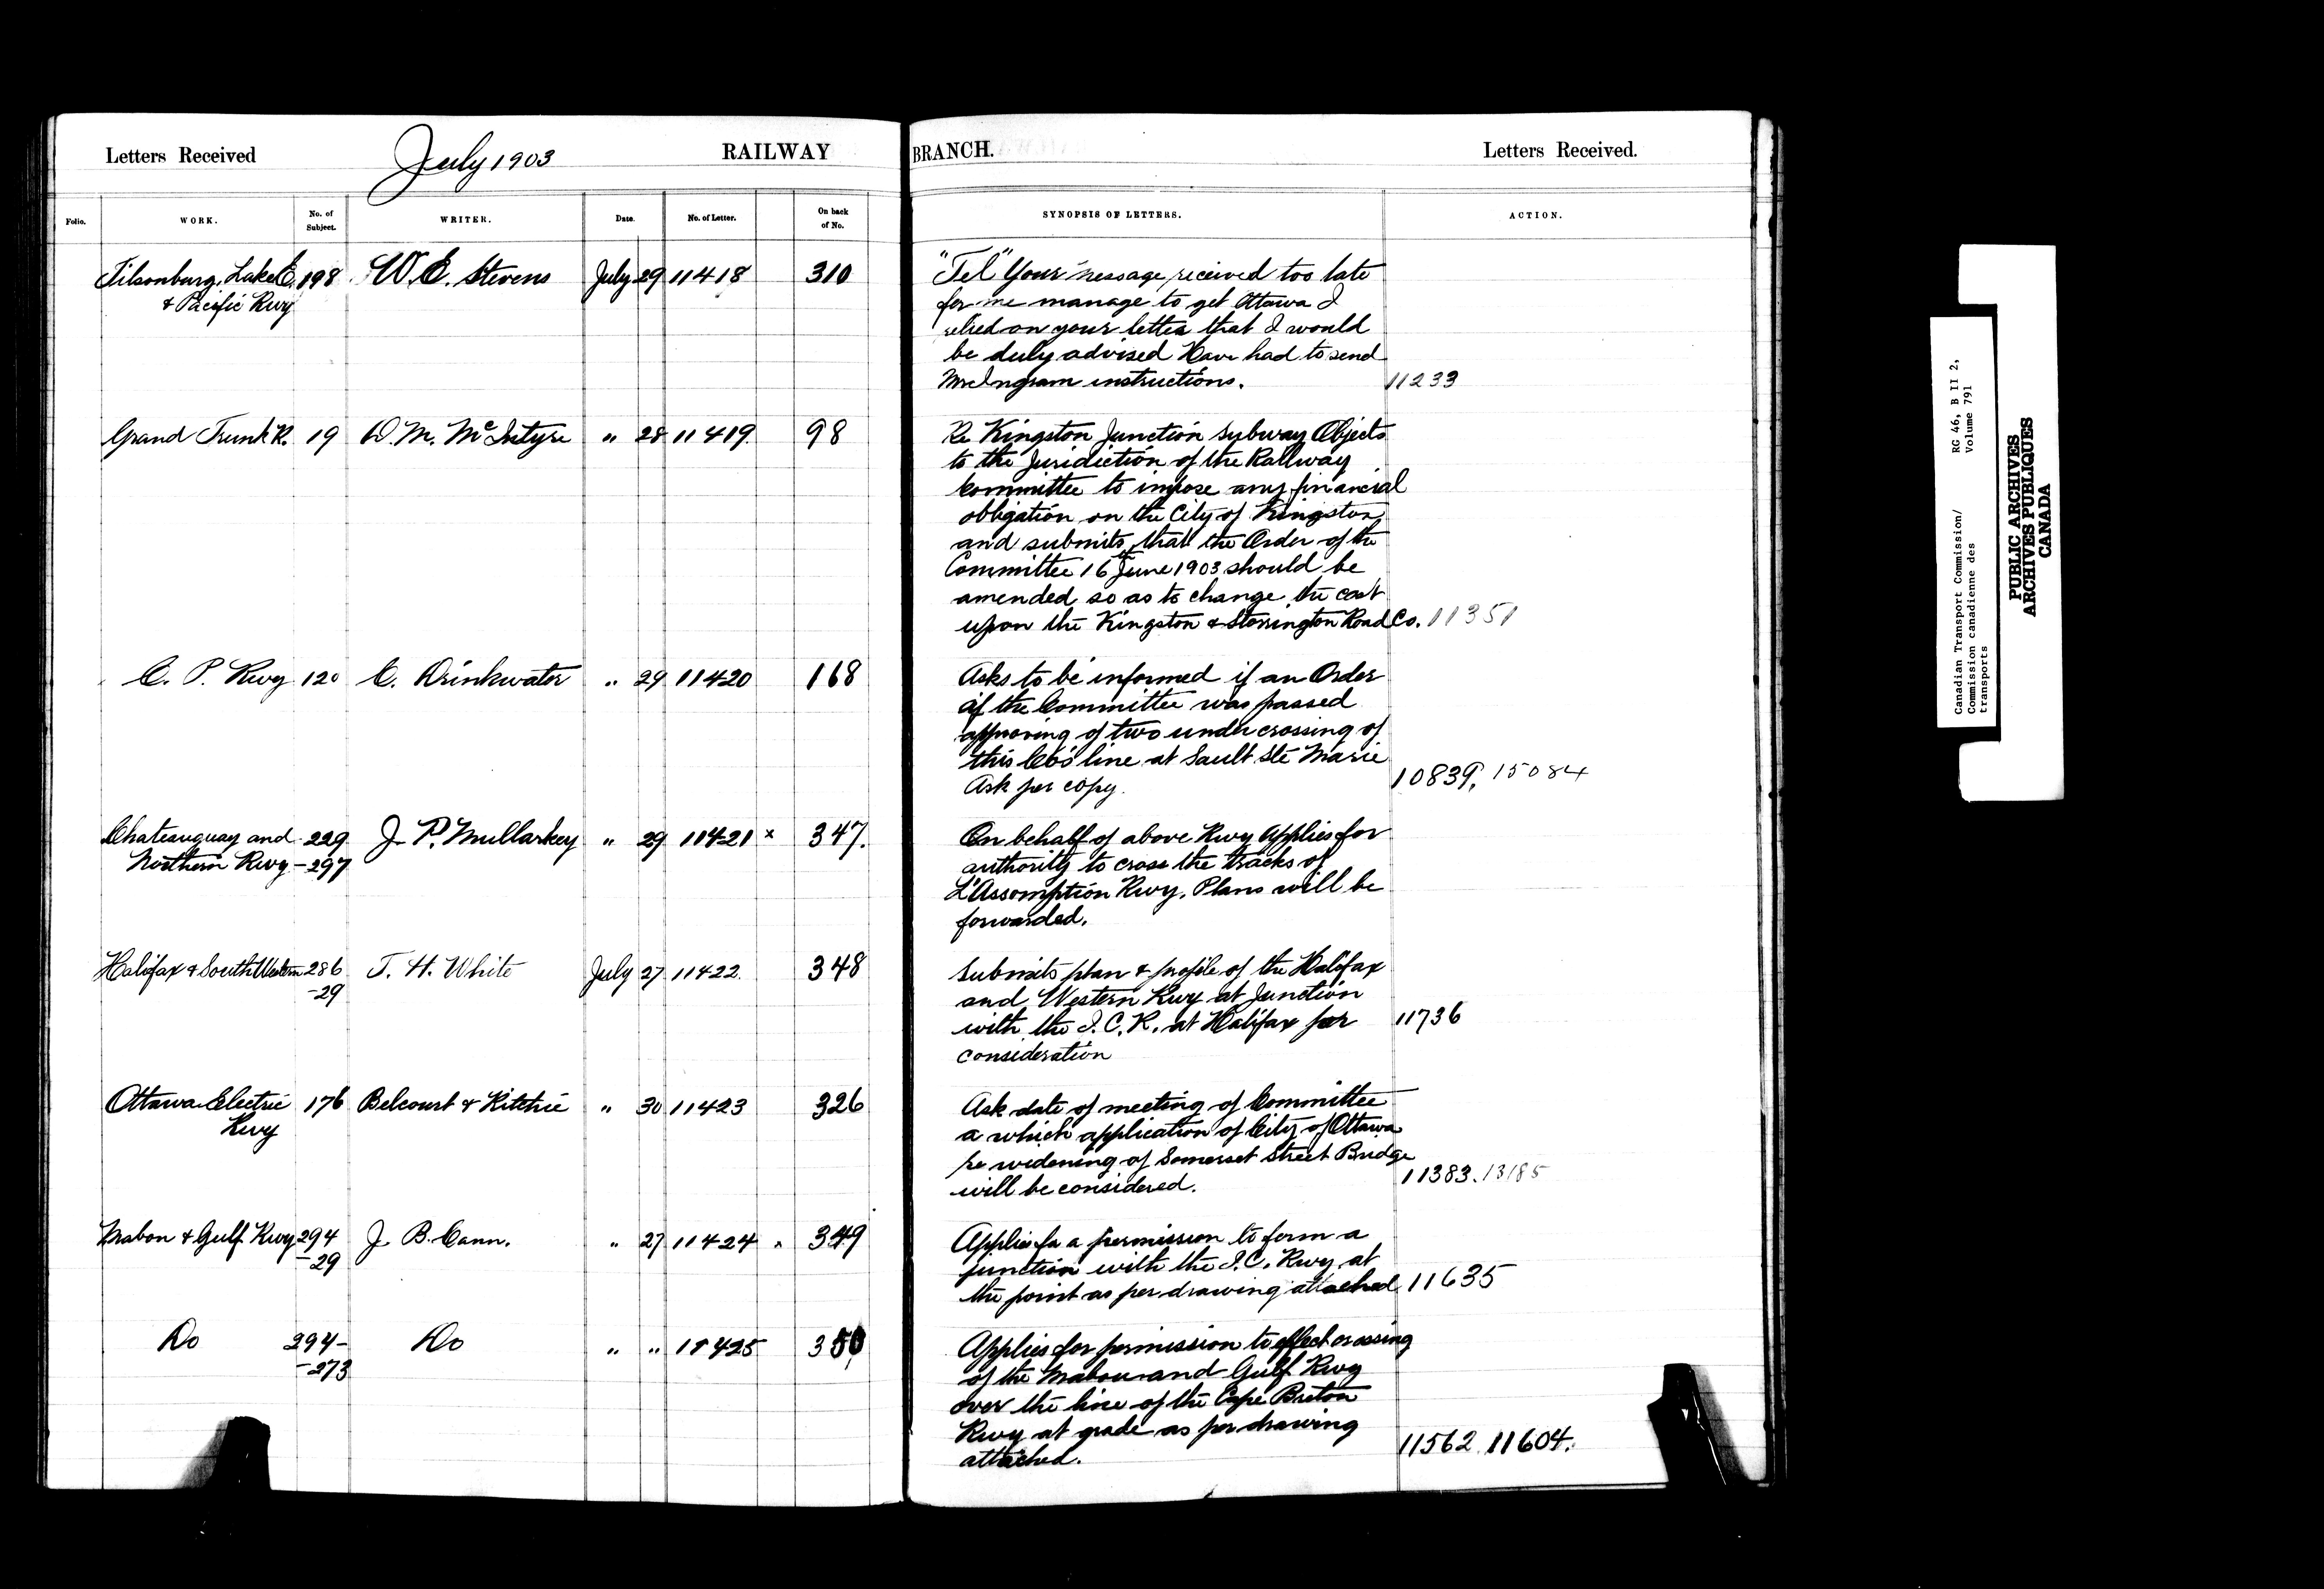 Letters Received
July 1903
RAILWAY
BRANCH.
Letters Received.
Folio.
WORK.
No. of Subject.
WRITER.
Date.
No. of Letter.
On back of No.
SYNOPSIS OF LETTERS.
ACTION.
Tilsonburg, Lake E. 198 W. E. Stevens July 29 11418 310
& Pacific Rwy
"Tel" Your message received too late
for me manage to get Ottawa I
relied on your letter that I would
be duly advised Have had to send
Mr Ingram instructions. 11233
Grand Trunk R. 19 D. M. McIntyre " 28 11419 98
Re Kingston Junction Subway Objects
to the Juridiction of the Railway
Committee to impose any financial
obligation on the City of Kingston
and submits that the Order of the
Committee 16th June 1903 should be
amended so as to change the cost
upon the Kingston & Storrington Road Co. 11351
C. P. Rwy 120 C. Drinkwater " 29 11420 168
Asks to be informed if an Order
of the Committee was passed
approving of two under crossing of
this Co's line at Sault Ste Marie
Ask for copy. 10839, 15084
Chateauguay and 229 J. P. Mullarkey " 29 11421 x 347.
Northern Rwy -297
On behalf of above Rwy Applies for
authority to cross the tracks of
L'Assomption Rwy. Plans will be
forwarded.
Halifax & South Western 286 T. H. White July 27 11422 348
-29
Submits plan & profile of the Halifax
and Western Rwy at Junction
with the I. C. R. at Halifax for 11736
consideration
Ottawa Electric 176 Belcourt & Ritchie " 30 11423 326
Rwy
Ask date of meeting of Committee
a which application of City of Ottawa
re widening of Somerset Street Bridge
will be considered. 11383. 13185
Mabou & Gulf Rwy 294 J. B. Cann. " 27 11424 x 349
-29
Applies for a permission to form a
junction with the I.C. Rwy at
the point as per drawing attached 11635
Do 294- Do " " 11425 350
-273
Applies for permission to effect crossing
of the Mabou and Gulf Rwy
over the line of the Cape Breton
Rwy at grade as per drawing
attached. 11562 11604.
Canadian Transport Commission/
Commission canadienne des
transports
RG 46, B II 2,
Volume 791
PUBLIC ARCHIVES
ARCHIVES PUBLIQUES
CANADA